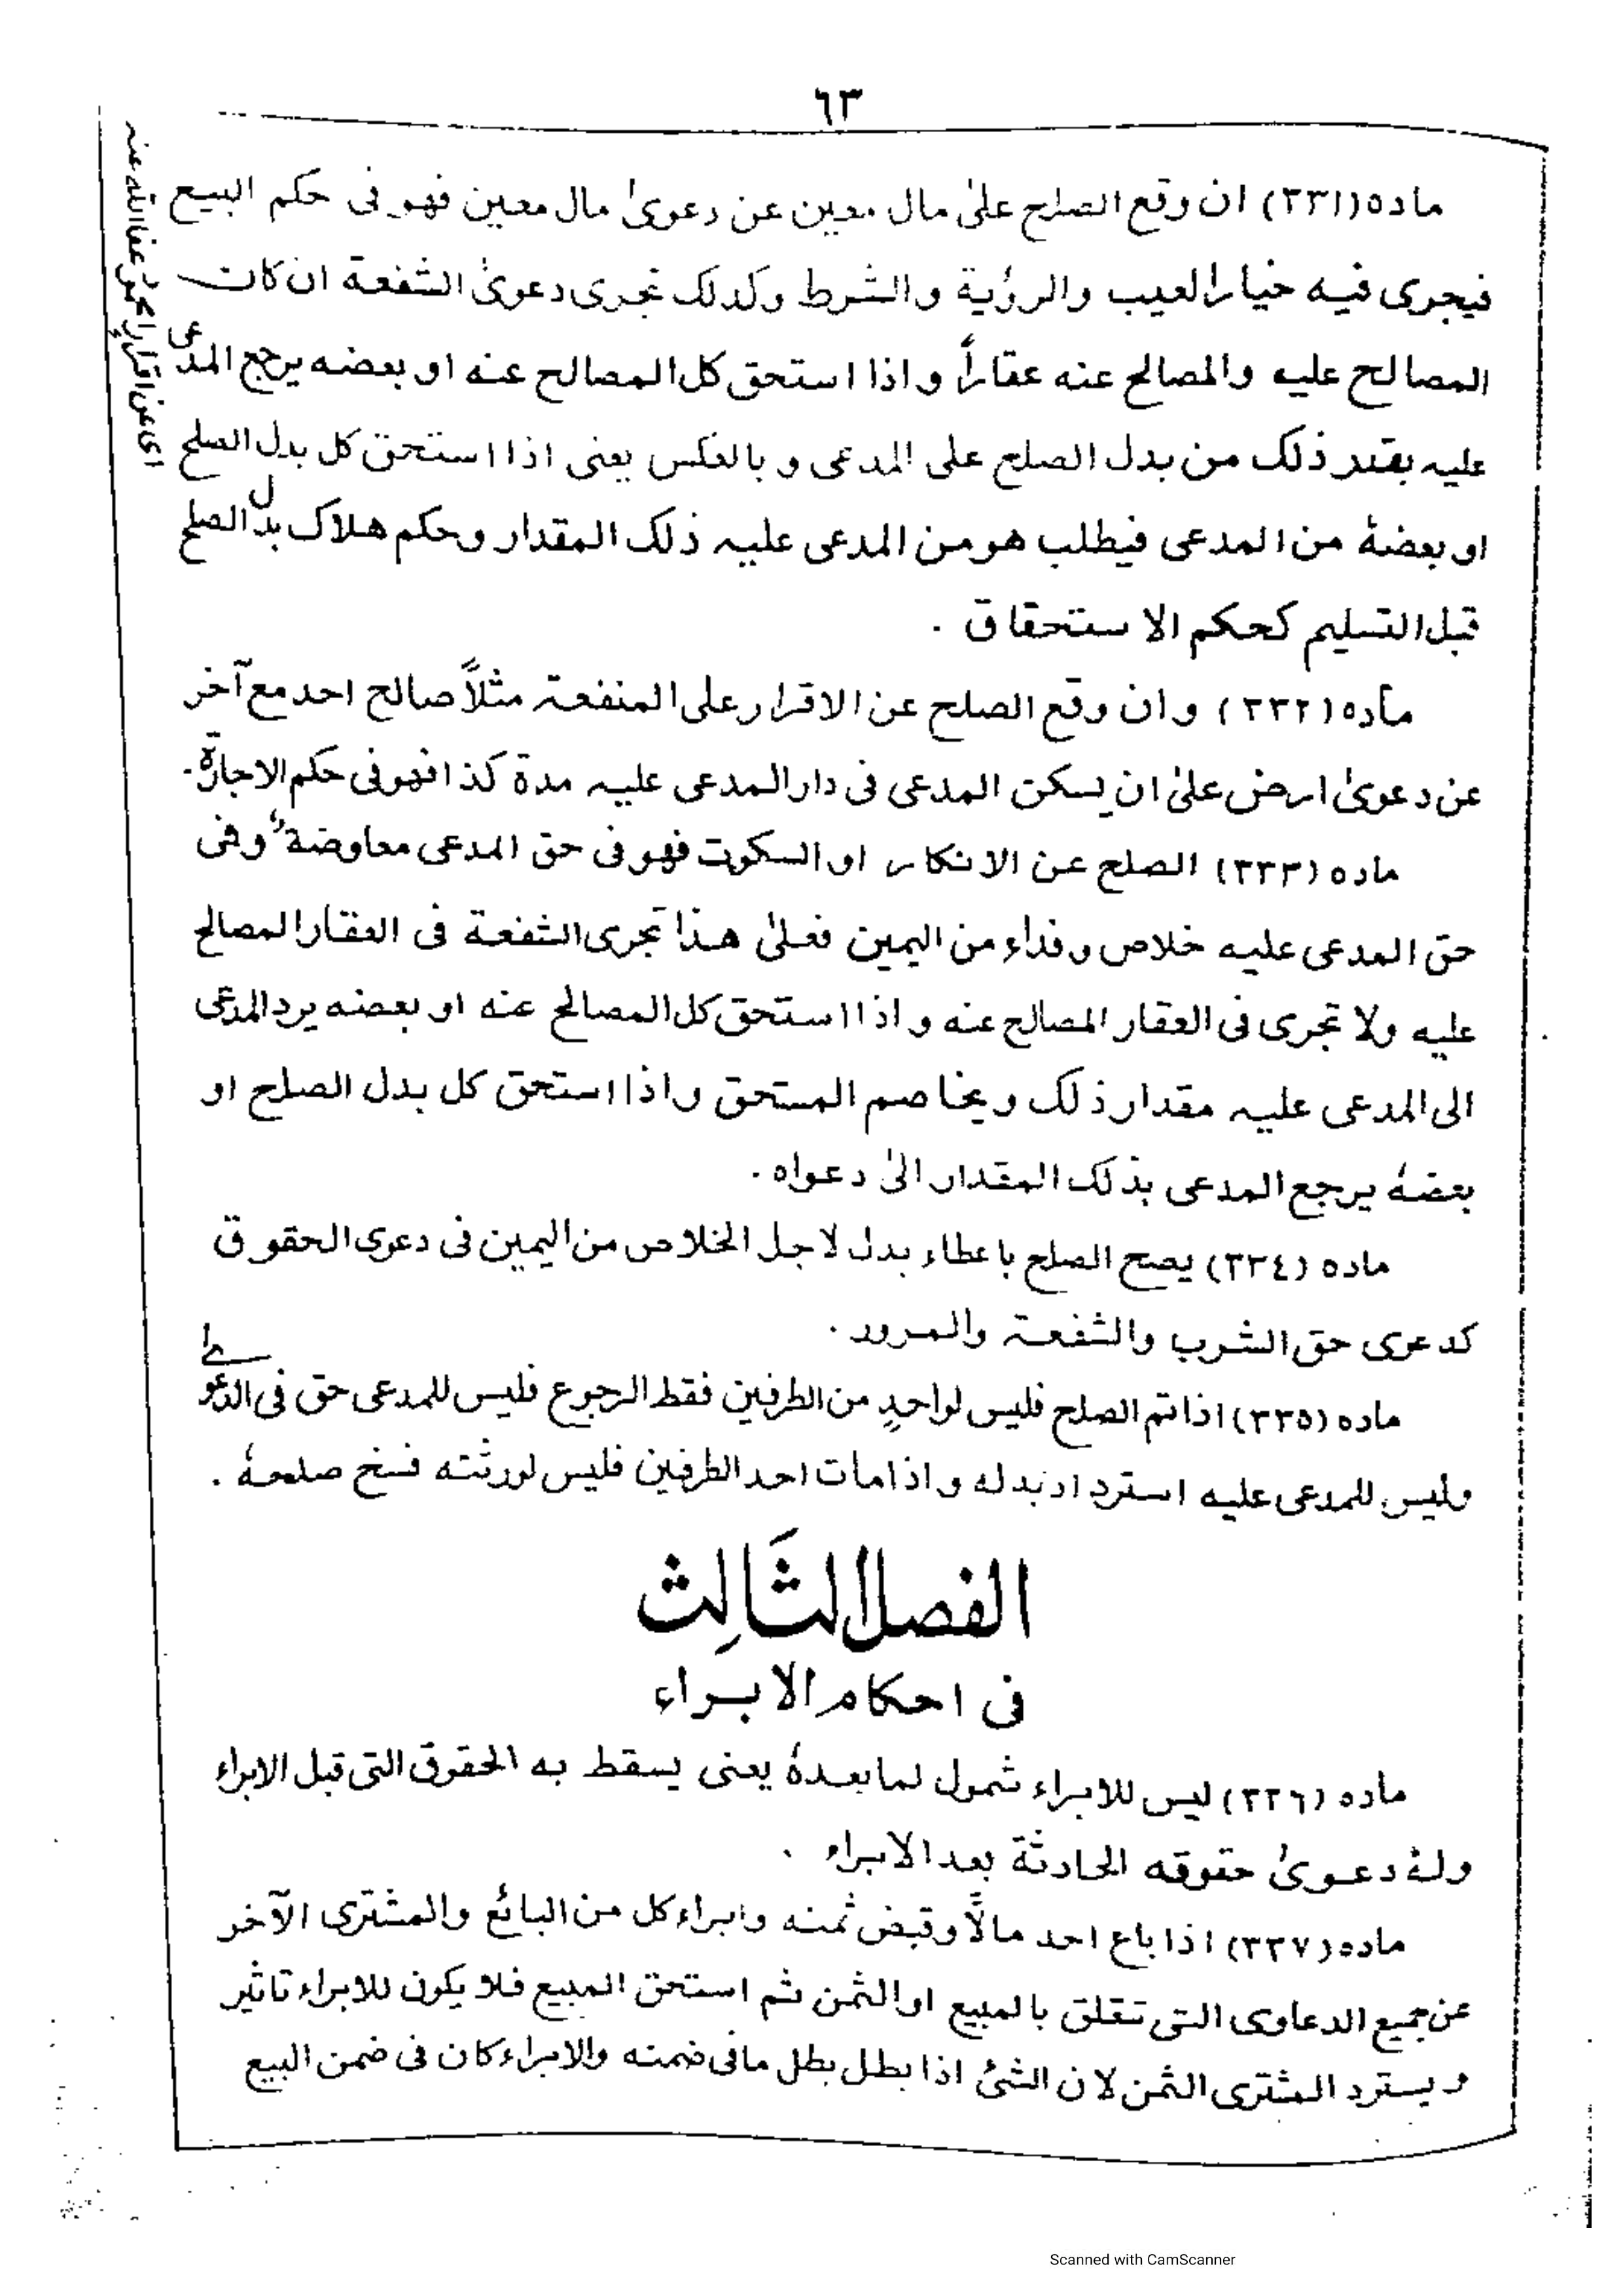 ٦٣
ماده (٣٣١) ان وقع الصلح علىٰ مال معين عن دعوىٰ مال معين فهو فى حكم البيع
فيجرى فيه خيار العيب والرؤية والشرط وكذلك تجرى دعوىٰ الشفعة ان كان
المصالح عليه والمصالح عنه عقاراً واذا استحق كل المصالح عنه او بعضه يرجع المدعى
عليه بقدر ذلك من بدل الصلح على المدعى وبالعكس يعنى اذا استحق كل بدل الصلح
او بعضهٔ من المدعى فيطلب هو من المدعى عليه ذلك المقدار وحكم هلاك بدل الصلح
قبل التسليم كحكم الاستحقاق .
ماده (٣٣٢) وان وقع الصلح عن الاقرار على المنفعة مثلاً صالح احد مع آخر
عن دعوىٰ ارض علىٰ ان يسكن المدعى فى دار المدعى عليه مدة كذا فهو فى حكم الاجارة .
ماده (٣٣٣) الصلح عن الانكار او السكوت فهو فى حق المدعى معاوضة وفى
حق المدعى عليه خلاص وفداء من اليمين فعلىٰ هذا تجرى الشفعة فى العقار المصالح
عليه ولا تجرى فى العقار المصالح عنه واذا استحق كل المصالح عنه او بعضه يرد المدعى
الى المدعى عليه مقدار ذلك ويخاصم المستحق واذا استحق كل بدل الصلح او
بعضهٔ يرجع المدعى بذلك المقدار الىٰ دعواه .
ماده (٣٣٤) يصح الصلح باعطاء بدل لاجل الخلاص من اليمين فى دعوى الحقوق
كدعوى حق الشرب والشفعة والمرور .
ماده (٣٣٥) اذا تم الصلح فليس لواحدٍ من الطرفين فقط الرجوع فليس للمدعى حق فى الدعوىٰ
وليس للمدعى عليه استرداد بدله واذا مات احد الطرفين فليس لورثته فسخ صلحهٔ .
الفصل الثَالِث
فى احكام الابراء
ماده (٣٣٦) ليس للابراء شمول لما بعدهٔ يعنى يسقط به الحقوق التى قبل الابراء
ولهٔ دعوىٰ حقوقه الحادثة بعد الابراء .
ماده (٣٣٧) اذا باع احد مالاً وقبض ثمنه وابراء كل من البائع والمشترى الآخر
عن جميع الدعاوى التى تتعلق بالمبيع او الثمن ثم استحق المبيع فلا يكون للابراء تاثير
ويسترد المشترى الثمن لان الشئ اذا بطل بطل ما فى ضمنه والابراء كان فى ضمن البيع
اى عن اقرار عفا الله عنه
Scanned with CamScanner